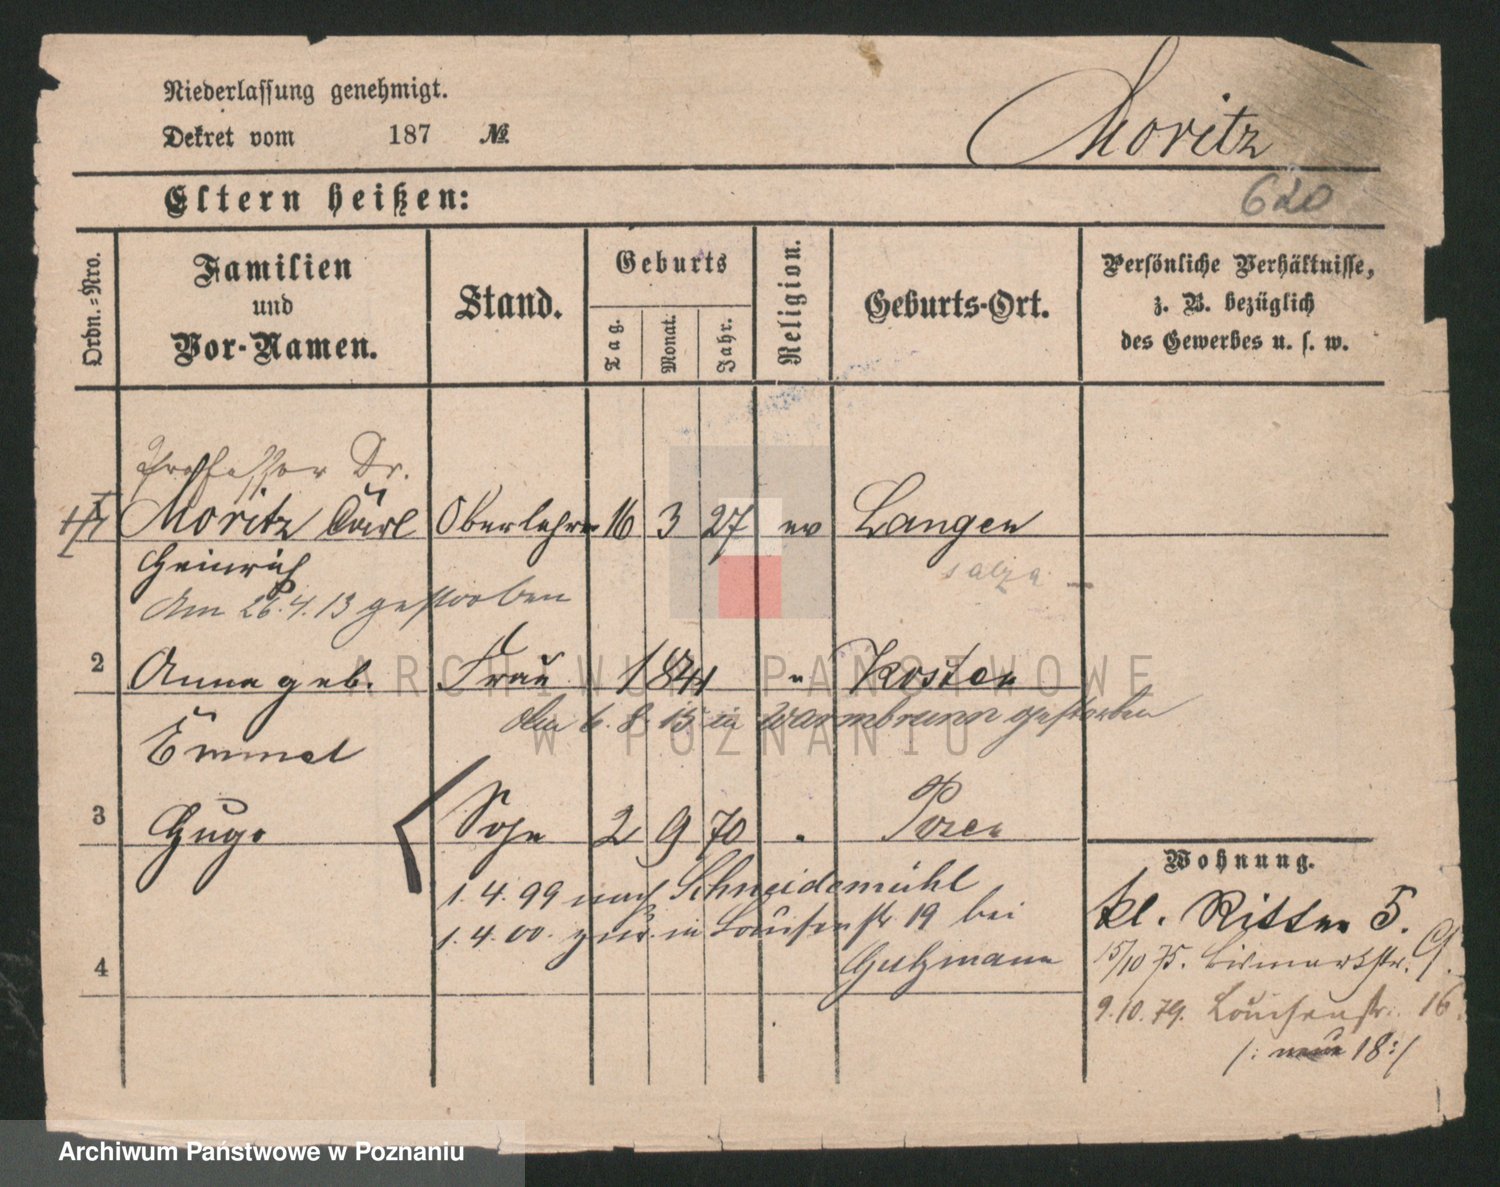 Niederlassung genehmigt.
Moritz
Dekret vom 187 №
Eltern heißen:
620
Ordn.=Nro.
Familien
und
Vor-Namen.
Stand.
Geburts
Tag.
Monat.
Jahr.
Religion.
Geburts-Ort.
Persönliche Verhältnisse,
z. B. bezüglich
des Gewerbes u. s. w.
Professor Dr.
Moritz Carl Oberlehrer 16 3 27 ev Langen
Heinrich salza
Am 26.4.13 gestorben
2 Anna geb. Frau 1841 " Kosten
Am 6. 8. 15 in Warmbrunn gestorben
Emmel
3 Hugo Sohn 2 9 70 " Posen
Wohnung.
1. 4. 99 nach Schneidemühl
kl. Ritter 5.
1. 4. 00. zur. in Louisenstr 19 bei
15/10 75. Bismarckstr. 9.
4 Gutzmann
9. 10. 79. Louisenstr. 16.
/: neue 18 :/
ARCHIWUM PAŃSTWOWE
W POZNANIU
Archiwum Państwowe w Poznaniu